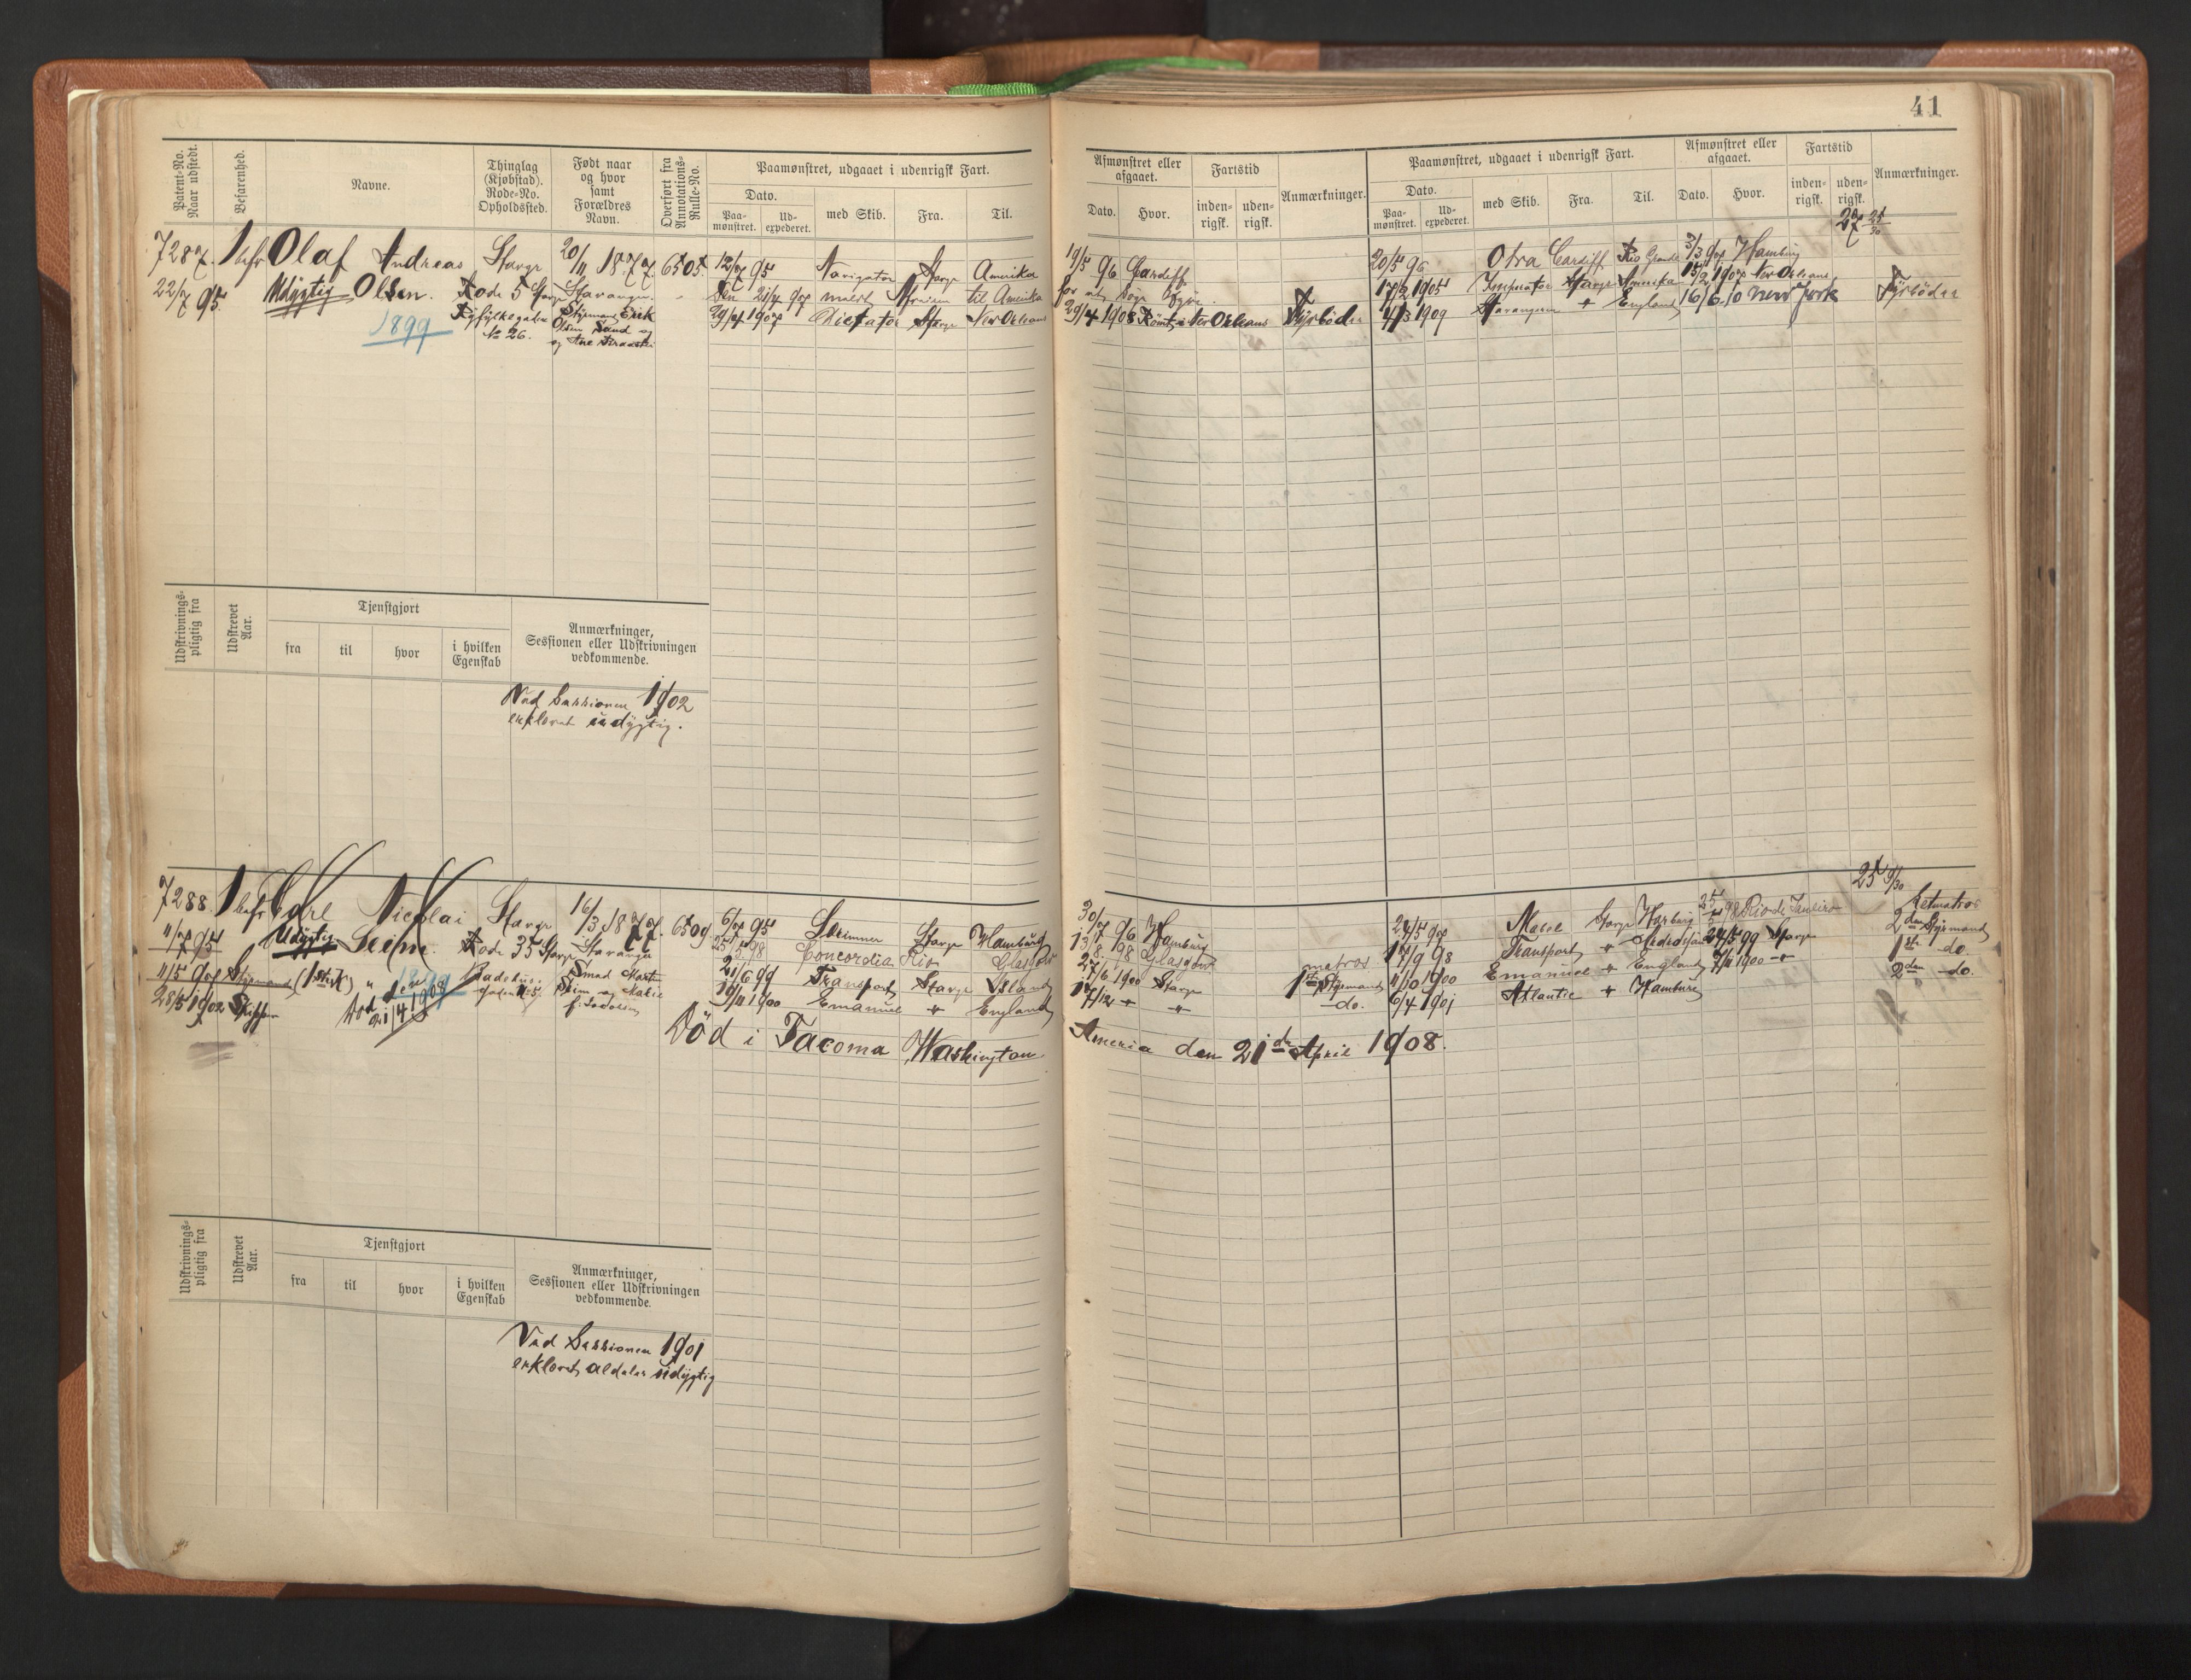 41
Patent-No. Naar udstedt.
Befarenhed.
Navne.
Thinglag (Kjøbstad). Rode-No. Opholdssted.
Født naar og hvor samt Forældres Navn.
Overført fra Annotations-Rulle-No.
Paamønstret, udgaaet i udenrigsk Fart.
Dato.
Paamønstret.
Udexpederet.
med Skib.
Fra.
Til.
Afmønstret eller afgaaet.
Dato.
Hvor.
Fartstid
indenrigsk.
udenrigsk.
Anmærkninger.
Paamønstret, udgaaet i udenrigsk Fart.
Dato.
Paamønstret.
Udexpederet.
med Skib.
Fra.
Til.
Afmønstret eller afgaaet.
Dato.
Hvor.
Fartstid
indenrigsk.
udenrigsk.
Anmærkninger.
27 25/30
7287. Olaf Andreas Stavgr 20/11 1877 6505. 12/7 95 Navigator Stavgr Amerika
22/7 95. Udygtig Olsen. Rode 5 Stavgr Stavanger
21/4 97 til Amerika
1899 No 26. Olsen Sand og 29/7 1907 Dictator Stavgr New Orleans
19/5 96 Cardiff 20/5 96 Otra Cardiff Rio Grande 3/3 97 Hamburg
17/2 1905 Imperator Stavgr Amerika 15/2 1907 New Orleans
29/4 1908 Rømt i New Orleans Fyrbøder 4/3 1909 Stavangeren " England 16/6-10 New York Fyrbøder
Udskrivningspligtig fra
Udskrevet Aar.
Tjenstgjort
fra
til
hvor
i hvilken Egenskab
Anmærkninger, Sessionen eller Udskrivningen vedkommende.
Ved Sessionen 1902
erklæret udygtig.
25 9/30
7288. Carl Nicolai Stavgr 16/3 1877. 6509 6/7 95 Skrimner Stavgr Hamburg
11/7 95 Udygtig Seim. Rode 35 Stavgr Stavanger 25/5 98 Concordia Rio Glasgow
11/5 97 Styrmand 1899 Smed 21/6 99 Transport Stavgr Island
28/5 1902 Skipper Død 21/4 1908 Seim og 19/11 1900 Emanuel " England
Død i Tacoma Washington
30/7 96 Hamburg 24/5 97 Stavgr Harburg 25/5 98 Rio de Janeiro Letmatros
13/8 98 Glasgow matros 17/9 98 Transport " 24/5 99 Stavgr 2den Styrmand
27/6 1900 Stavgr 1ste Styrmand 11/10 1900 Emanuel " England 7/11 1900 " 1ste do.
17/12 " " do. 6/4 1901 Atlantic " Hamburg 2den do.
Ameria den 21de April 1908.
Udskrivningspligtig fra
Udskrevet Aar.
Tjenstgjort
fra
til
hvor
i hvilken Egenskab
Anmærkninger, Sessionen eller Udskrivningen vedkommende.
Ved Sessionen 1901
erklæret aldeles udygtig